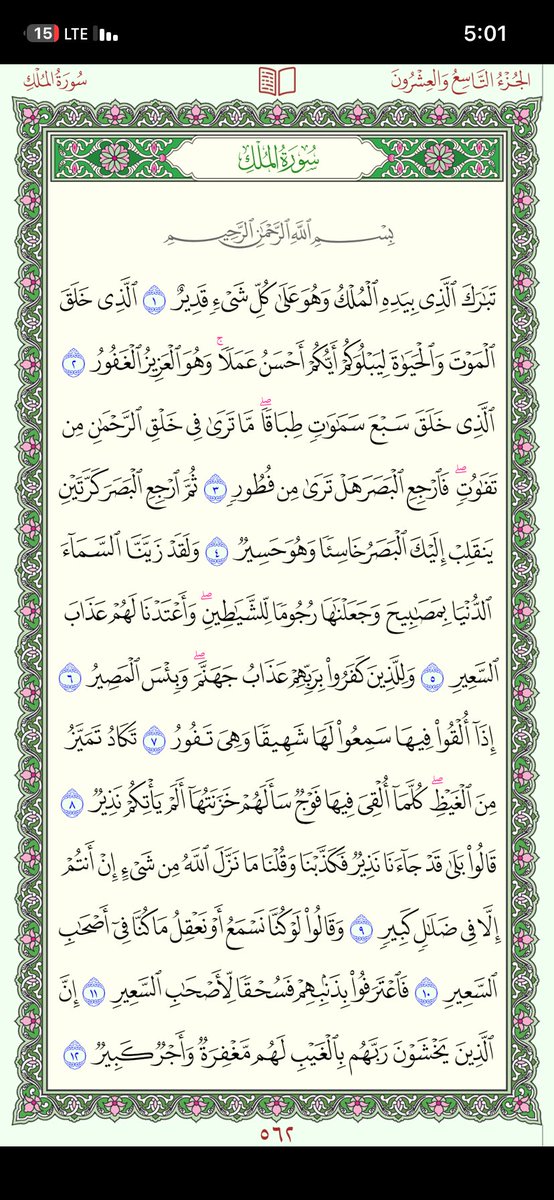 15 LTE 5:01
الجُزْءُ التَّاسِعُ وَالعِشْرُونَ سُورَةُ المُلْكِ
سُورَةُ المُلْكِ
بِسْمِ اللَّهِ الرَّحْمَٰنِ الرَّحِيمِ
تَبَٰرَكَ ٱلَّذِى بِيَدِهِ ٱلْمُلْكُ وَهُوَ عَلَىٰ كُلِّ شَىْءٍ قَدِيرٌ ١ ٱلَّذِى خَلَقَ
ٱلْمَوْتَ وَٱلْحَيَوٰةَ لِيَبْلُوَكُمْ أَيُّكُمْ أَحْسَنُ عَمَلًا ۚ وَهُوَ ٱلْعَزِيزُ ٱلْغَفُورُ ٢
ٱلَّذِى خَلَقَ سَبْعَ سَمَٰوَٰتٍ طِبَاقًا ۖ مَّا تَرَىٰ فِى خَلْقِ ٱلرَّحْمَٰنِ مِن
تَفَٰوُتٍ ۖ فَٱرْجِعِ ٱلْبَصَرَ هَلْ تَرَىٰ مِن فُطُورٍ ٣ ثُمَّ ٱرْجِعِ ٱلْبَصَرَ كَرَّتَيْنِ
يَنقَلِبْ إِلَيْكَ ٱلْبَصَرُ خَاسِئًا وَهُوَ حَسِيرٌ ٤ وَلَقَدْ زَيَّنَّا ٱلسَّمَآءَ
ٱلدُّنْيَا بِمَصَٰبِيحَ وَجَعَلْنَٰهَا رُجُومًا لِّلشَّيَٰطِينِ ۖ وَأَعْتَدْنَا لَهُمْ عَذَابَ
ٱلسَّعِيرِ ٥ وَلِلَّذِينَ كَفَرُوا۟ بِرَبِّهِمْ عَذَابُ جَهَنَّمَ ۖ وَبِئْسَ ٱلْمَصِيرُ ٦
إِذَآ أُلْقُوا۟ فِيهَا سَمِعُوا۟ لَهَا شَهِيقًا وَهِىَ تَفُورُ ٧ تَكَادُ تَمَيَّزُ
مِنَ ٱلْغَيْظِ ۖ كُلَّمَآ أُلْقِىَ فِيهَا فَوْجٌ سَأَلَهُمْ خَزَنَتُهَآ أَلَمْ يَأْتِكُمْ نَذِيرٌ ٨
قَالُوا۟ بَلَىٰ قَدْ جَآءَنَا نَذِيرٌ فَكَذَّبْنَا وَقُلْنَا مَا نَزَّلَ ٱللَّهُ مِن شَىْءٍ إِنْ أَنتُمْ
إِلَّا فِى ضَلَٰلٍ كَبِيرٍ ٩ وَقَالُوا۟ لَوْ كُنَّا نَسْمَعُ أَوْ نَعْقِلُ مَا كُنَّا فِىٓ أَصْحَٰبِ
ٱلسَّعِيرِ ١٠ فَٱعْتَرَفُوا۟ بِذَنۢبِهِمْ فَسُحْقًا لِّأَصْحَٰبِ ٱلسَّعِيرِ ١١ إِنَّ
ٱلَّذِينَ يَخْشَوْنَ رَبَّهُم بِٱلْغَيْبِ لَهُم مَّغْفِرَةٌ وَأَجْرٌ كَبِيرٌ ١٢
٥٦٢